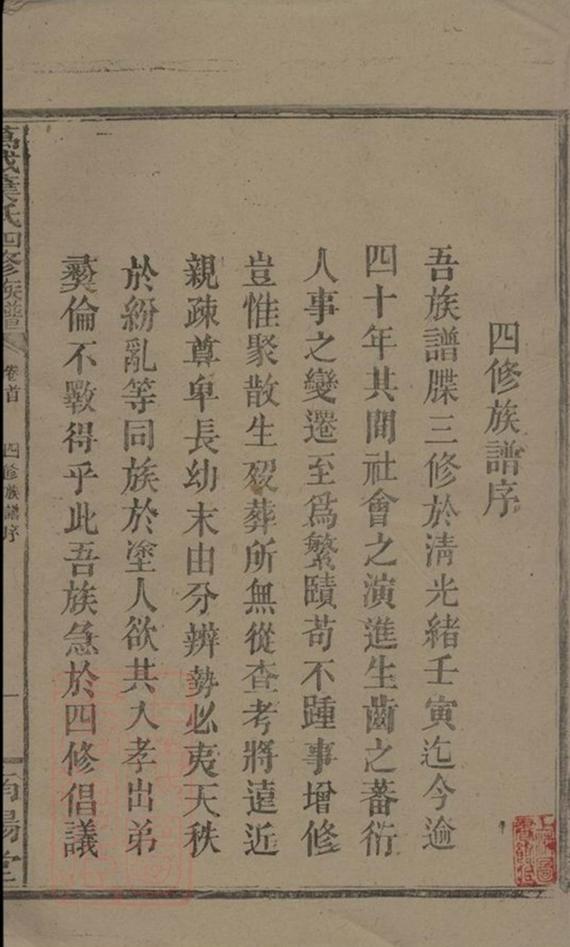 四修族譜序
吾族譜牒三修於清光緒壬寅迄今逾
四十年其間社會之演進生齒之蕃衍
人事之變遷至爲繁賾苟不踵事增修
豈惟聚散生歿葬所無從查考將遠近
親疎尊卑長幼末由分辨勢必夷天秩
於紛亂等同族於塗人欲其入孝出弟
彝倫不斁得乎此吾族急於四修倡議
萬載葉氏四修族譜
卷首
四修族譜序
一
南陽堂